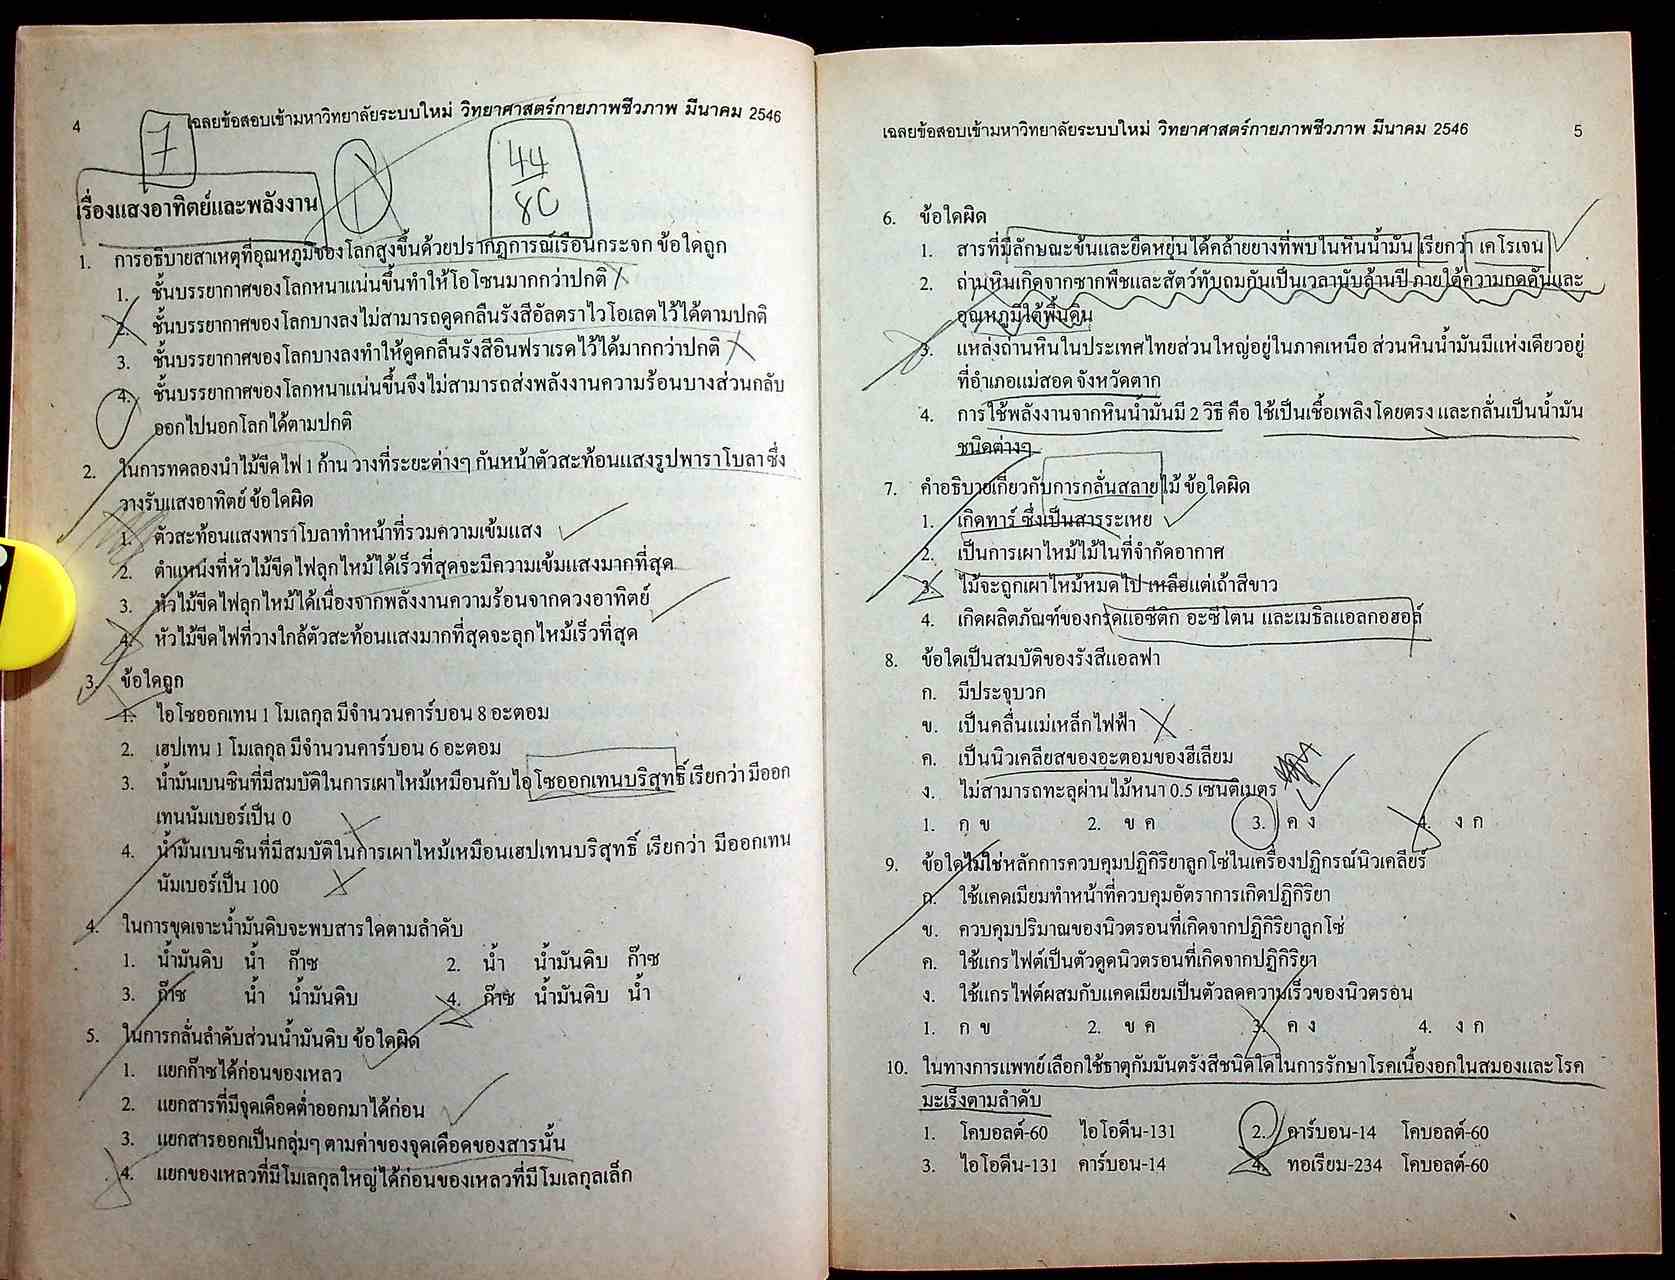 4 เฉลยข้อสอบเข้ามหาวิทยาลัยระบบใหม่ วิทยาศาสตร์กายภาพชีวภาพ มีนาคม 2546
7
1
44
80
เรื่องแสงอาทิตย์และพลังงาน
1. การอธิบายสาเหตุที่อุณหภูมิของโลกสูงขึ้นด้วยปรากฏการณ์เรือนกระจก ข้อใดถูก
1. ชั้นบรรยากาศของโลกหนาแน่นขึ้นทำให้โอโซนมากกว่าปกติ
2. ชั้นบรรยากาศของโลกบางลงไม่สามารถดูดกลืนรังสีอัลตราไวโอเลตไว้ได้ตามปกติ
3. ชั้นบรรยากาศของโลกบางลงทำให้ดูดกลืนรังสีอินฟราเรดไว้ได้มากกว่าปกติ
4. ชั้นบรรยากาศของโลกหนาแน่นขึ้นจึงไม่สามารถส่งพลังงานความร้อนบางส่วนกลับ
ออกไปนอกโลกได้ตามปกติ
2. ในการทดลองนำไม้ขีดไฟ 1 ก้าน วางที่ระยะต่างๆ กันหน้าตัวสะท้อนแสงรูปพาราโบลา ซึ่ง
วางรับแสงอาทิตย์ ข้อใดผิด
1. ตัวสะท้อนแสงพาราโบลาทำหน้าที่รวมความเข้มแสง
2. ตำแหน่งที่หัวไม้ขีดไฟลุกไหม้ได้เร็วที่สุดจะมีความเข้มแสงมากที่สุด
3. หัวไม้ขีดไฟลุกไหม้ได้เนื่องจากพลังงานความร้อนจากดวงอาทิตย์
4. หัวไม้ขีดไฟที่วางใกล้ตัวสะท้อนแสงมากที่สุดจะลุกไหม้เร็วที่สุด
3. ข้อใดถูก
1. ไอโซออกเทน 1 โมเลกุล มีจำนวนคาร์บอน 8 อะตอม
2. เฮปเทน 1 โมเลกุล มีจำนวนคาร์บอน 6 อะตอม
3. น้ำมันเบนซินที่มีสมบัติในการเผาไหม้เหมือนกับไอโซออกเทนบริสุทธิ์ เรียกว่า มีออก
เทนนัมเบอร์เป็น 0
4. น้ำมันเบนซินที่มีสมบัติในการเผาไหม้เหมือนเฮปเทนบริสุทธิ์ เรียกว่า มีออกเทน
นัมเบอร์เป็น 100
4. ในการขุดเจาะน้ำมันดิบจะพบสารใดตามลำดับ
1. น้ำมันดิบ น้ำ ก๊าซ 2. น้ำ น้ำมันดิบ ก๊าซ
3. ก๊าซ น้ำ น้ำมันดิบ 4. ก๊าซ น้ำมันดิบ น้ำ
5. ในการกลั่นลำดับส่วนน้ำมันดิบ ข้อใดผิด
1. แยกก๊าซได้ก่อนของเหลว
2. แยกสารที่มีจุดเดือดต่ำออกมาได้ก่อน
3. แยกสารออกเป็นกลุ่มๆ ตามค่าของจุดเดือดของสารนั้น
4. แยกของเหลวที่มีโมเลกุลใหญ่ได้ก่อนของเหลวที่มีโมเลกุลเล็ก
เฉลยข้อสอบเข้ามหาวิทยาลัยระบบใหม่ วิทยาศาสตร์กายภาพชีวภาพ มีนาคม 2546 5
6. ข้อใดผิด
1. สารที่มีลักษณะข้นและยืดหยุ่นได้คล้ายยางที่พบในหินน้ำมัน เรียกว่า เคโรเจน
2. ถ่านหินเกิดจากซากพืชและสัตว์ทับถมกันเป็นเวลานับล้านปี ภายใต้ความกดดันและ
อุณหภูมิใต้พื้นดิน
3. แหล่งถ่านหินในประเทศไทยส่วนใหญ่อยู่ในภาคเหนือ ส่วนหินน้ำมันมีแห่งเดียวอยู่
ที่อำเภอแม่สอด จังหวัดตาก
4. การใช้พลังงานจากหินน้ำมันมี 2 วิธี คือ ใช้เป็นเชื้อเพลิงโดยตรง และกลั่นเป็นน้ำมัน
ชนิดต่างๆ
7. คำอธิบายเกี่ยวกับการกลั่นสลายไม้ ข้อใดผิด
1. เกิดทาร์ ซึ่งเป็นสารระเหย
2. เป็นการเผาไหม้ไม้ในที่จำกัดอากาศ
3. ไม้จะถูกเผาไหม้หมดไป เหลือแต่เถ้าสีขาว
4. เกิดผลิตภัณฑ์ของกรดแอซีติก อะซีโตน และเมธิลแอลกอฮอล์
8. ข้อใดเป็นสมบัติของรังสีแอลฟา
ก. มีประจุบวก
ข. เป็นคลื่นแม่เหล็กไฟฟ้า
ค. เป็นนิวเคลียสของอะตอมของฮีเลียม
ง. ไม่สามารถทะลุผ่านไม้หนา 0.5 เซนติเมตร
1. ก ข 2. ข ค 3. ค ง 4. ง ก
9. ข้อใดไม่ใช่หลักการควบคุมปฏิกิริยาลูกโซ่ในเครื่องปฏิกรณ์นิวเคลียร์
ก. ใช้แคดเมียมทำหน้าที่ควบคุมอัตราการเกิดปฏิกิริยา
ข. ควบคุมปริมาณของนิวตรอนที่เกิดจากปฏิกิริยาลูกโซ่
ค. ใช้แกรไฟต์เป็นตัวดูดนิวตรอนที่เกิดจากปฏิกิริยา
ง. ใช้แกรไฟต์ผสมกับแคดเมียมเป็นตัวลดความเร็วของนิวตรอน
1. ก ข 2. ข ค 3. ค ง 4. ง ก
10. ในทางการแพทย์เลือกใช้ธาตุกัมมันตรังสีชนิดใดในการรักษาโรคเนื้องอกในสมองและโรค
มะเร็งตามลำดับ
1. โคบอลต์-60 ไอโอดีน-131 2. คาร์บอน-14 โคบอลต์-60
3. ไอโอดีน-131 คาร์บอน-14 4. ทอเรียม-234 โคบอลต์-60